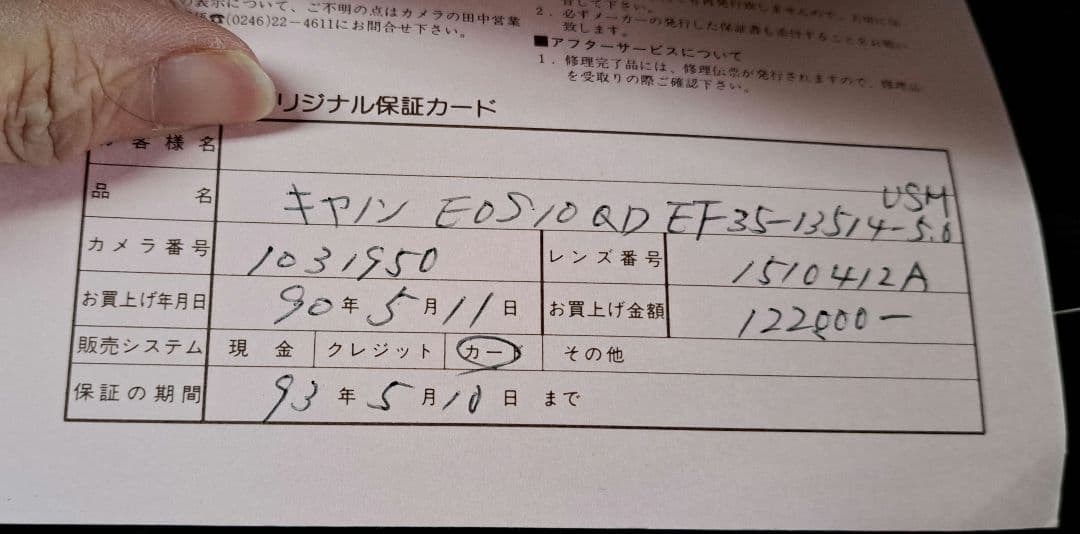 の表示について、ご不明の点はカメラの田中営業
☎(0246)22-4611にお問合せ下さい。
して下さい。
2. 必ずメーカーの発行した保証書も添付することをお願い
致します。
■アフターサービスについて
1. 修理完了品には、修理伝票が発行されますので、修理品
を受取りの際ご確認下さい。
リジナル保証カード
客様名
品名 キヤノン EOS10QD EF35-135 f4-5.6 USM
カメラ番号 1031950 レンズ番号 1510412A
お買上げ年月日 90年5月11日 お買上げ金額 122000-
販売システム 現金 クレジット カード その他
保証の期間 93年5月10日まで